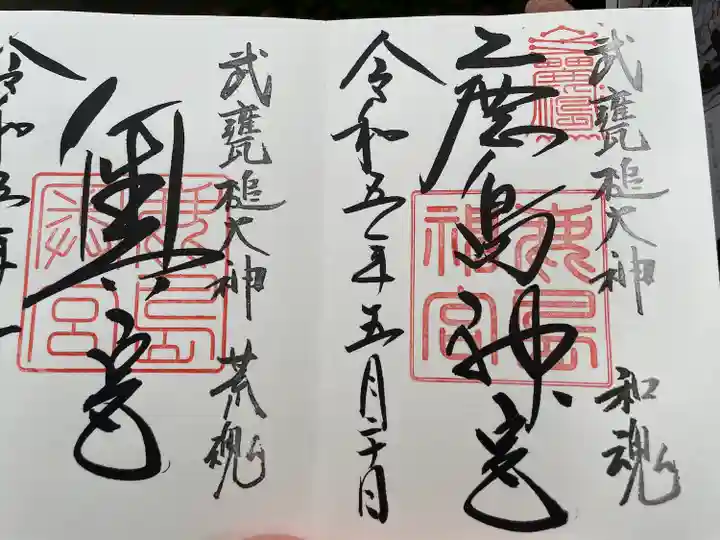 武甕槌大神 和魂
鹿島神宮
鹿島神宮
令和五年五月二十日
武甕槌大神 荒魂
奥宮
鹿島神宮
令和五年五